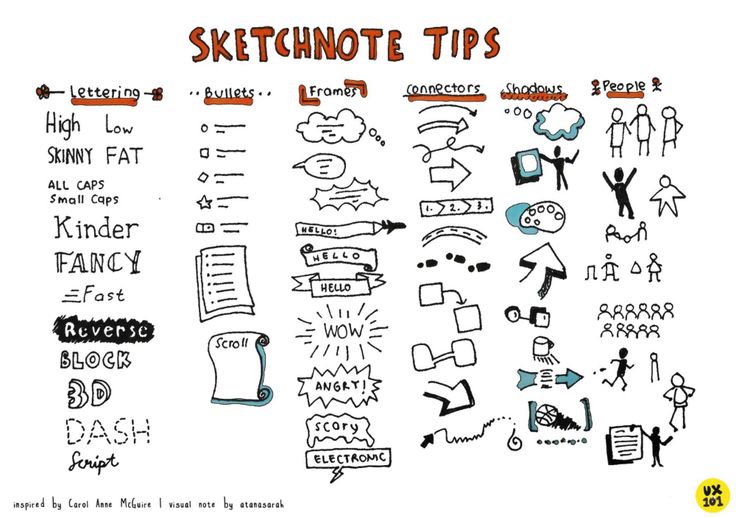 SKETCHNOTE TIPS
Lettering
High Low
SKINNY FAT
ALL CAPS
Small Caps
Kinder
FANCY
Fast
Reverse
BLOCK
3D
DASH
Script
Bullets
Scroll
Frames
HELLO!
HELLO
HELLO
WOW
ANGRY!
scary
ELECTRONIC
connectors
1. 2. 3.
Shadows
People
inspired by Carol Anne McGuire | visual note by atanasarah
UX
101